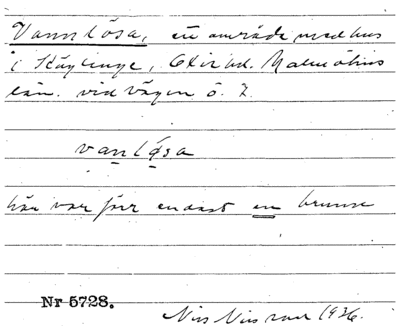 Vannlösa, en område med hus
i Käglinge, Oxie hd. Malmöhus
län. vid vägen ö. 7.
vanlösa
här var förr endast en brunn
Nr 5728.
Nils Nilsson 1936.